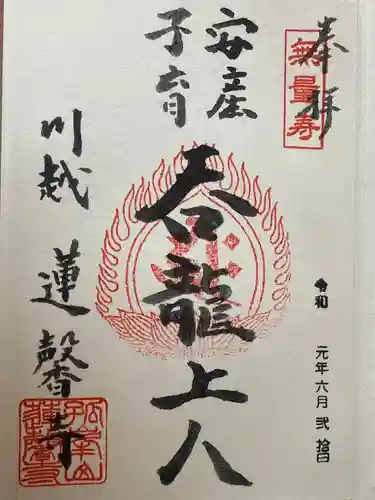 奉拝
無量寿
令和 元年六月 弐拾日
安産
子育
呑龍上人
川越 蓮馨寺